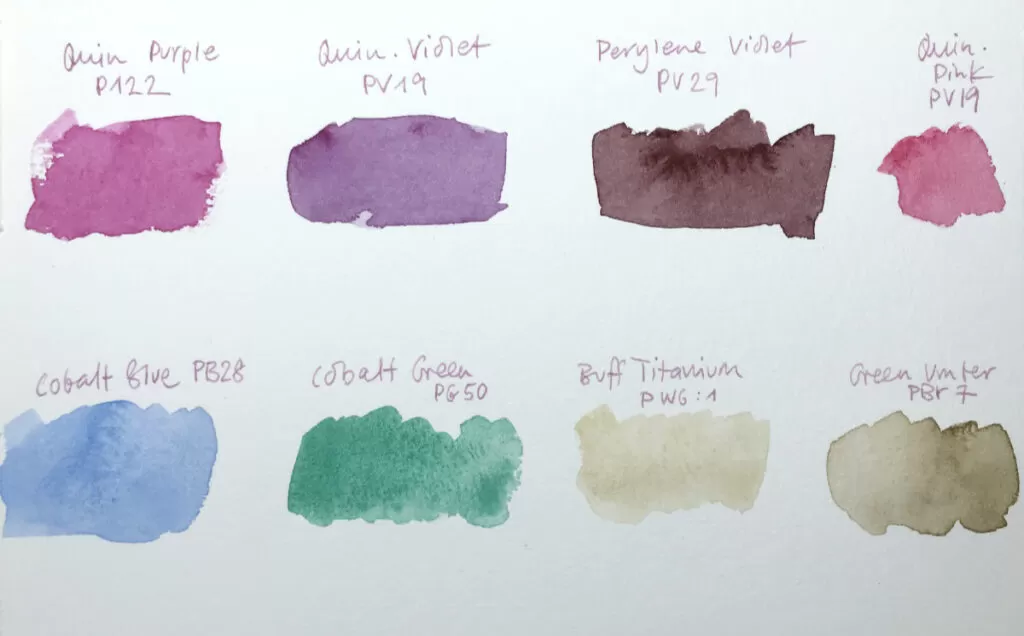 Quin Purple
P122
Quin. Violet
PV19
Perylene Violet
PV29
Quin.
Pink
PV19
Cobalt Blue PB28
Cobalt Green
PG50
Buff Titanium
PW6:1
Green Umber
PBr7